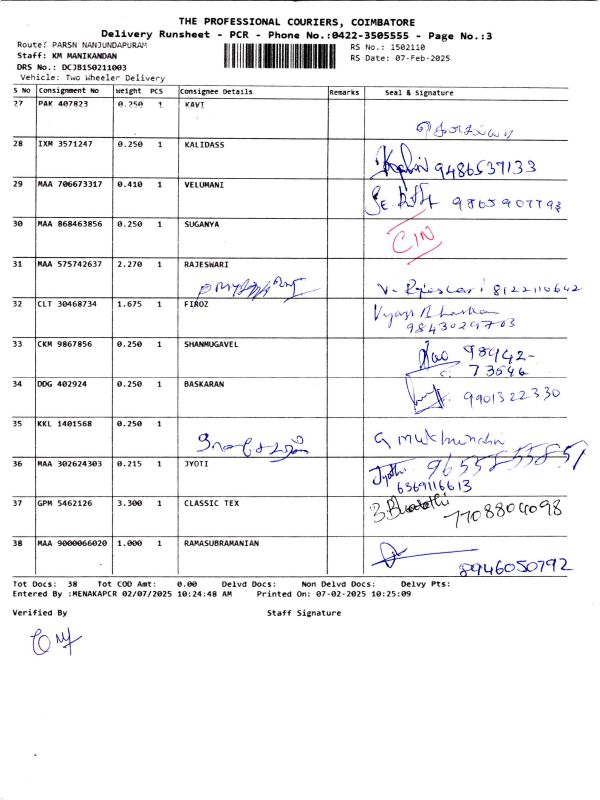 THE PROFESSIONAL COURIERS, COIMBATORE
Delivery Runsheet - PCR - Phone No.:0422-3505555 - Page No.:3
Route: PARSN NANJUNDAPURAM
RS No.: 1502110
Staff: KM MANIKANDAN
RS Date: 07-Feb-2025
DRS No.: DCJB150211003
Vehicle: Two Wheeler Delivery
S No Consignment No Weight PCS Consignee Details Remarks Seal & Signature
27 PAK 407823 0.250 1 KAVI
28 IXM 3571247 0.250 1 KALIDASS
9486537133
29 MAA 706673317 0.410 1 VELUMANI
9865907793
30 MAA 868463856 0.250 1 SUGANYA
CIN
31 MAA 575742637 2.270 1 RAJESWARI
V. Rajeswari 8122110642
32 CLT 30468734 1.675 1 FIROZ
9843029703
33 CKM 9867856 0.250 1 SHANMUGAVEL
98942-
73546
34 DDG 402924 0.250 1 BASKARAN
9901322330
35 KKL 1401568 0.250 1
36 MAA 302624303 0.215 1 JYOTI
Jyothi
6369116613
37 GPM 5462126 3.300 1 CLASSIC TEX
B. Bharathi 7708804098
38 MAA 9000066020 1.000 1 RAMASUBRAMANIAN
8946050792
Tot Docs: 38 Tot COD Amt: 0.00 Delvd Docs: Non Delvd Docs: Delvy Pts:
Entered By :MENAKAPCR 02/07/2025 10:24:48 AM Printed On: 07-02-2025 10:25:09
Verified By Staff Signature